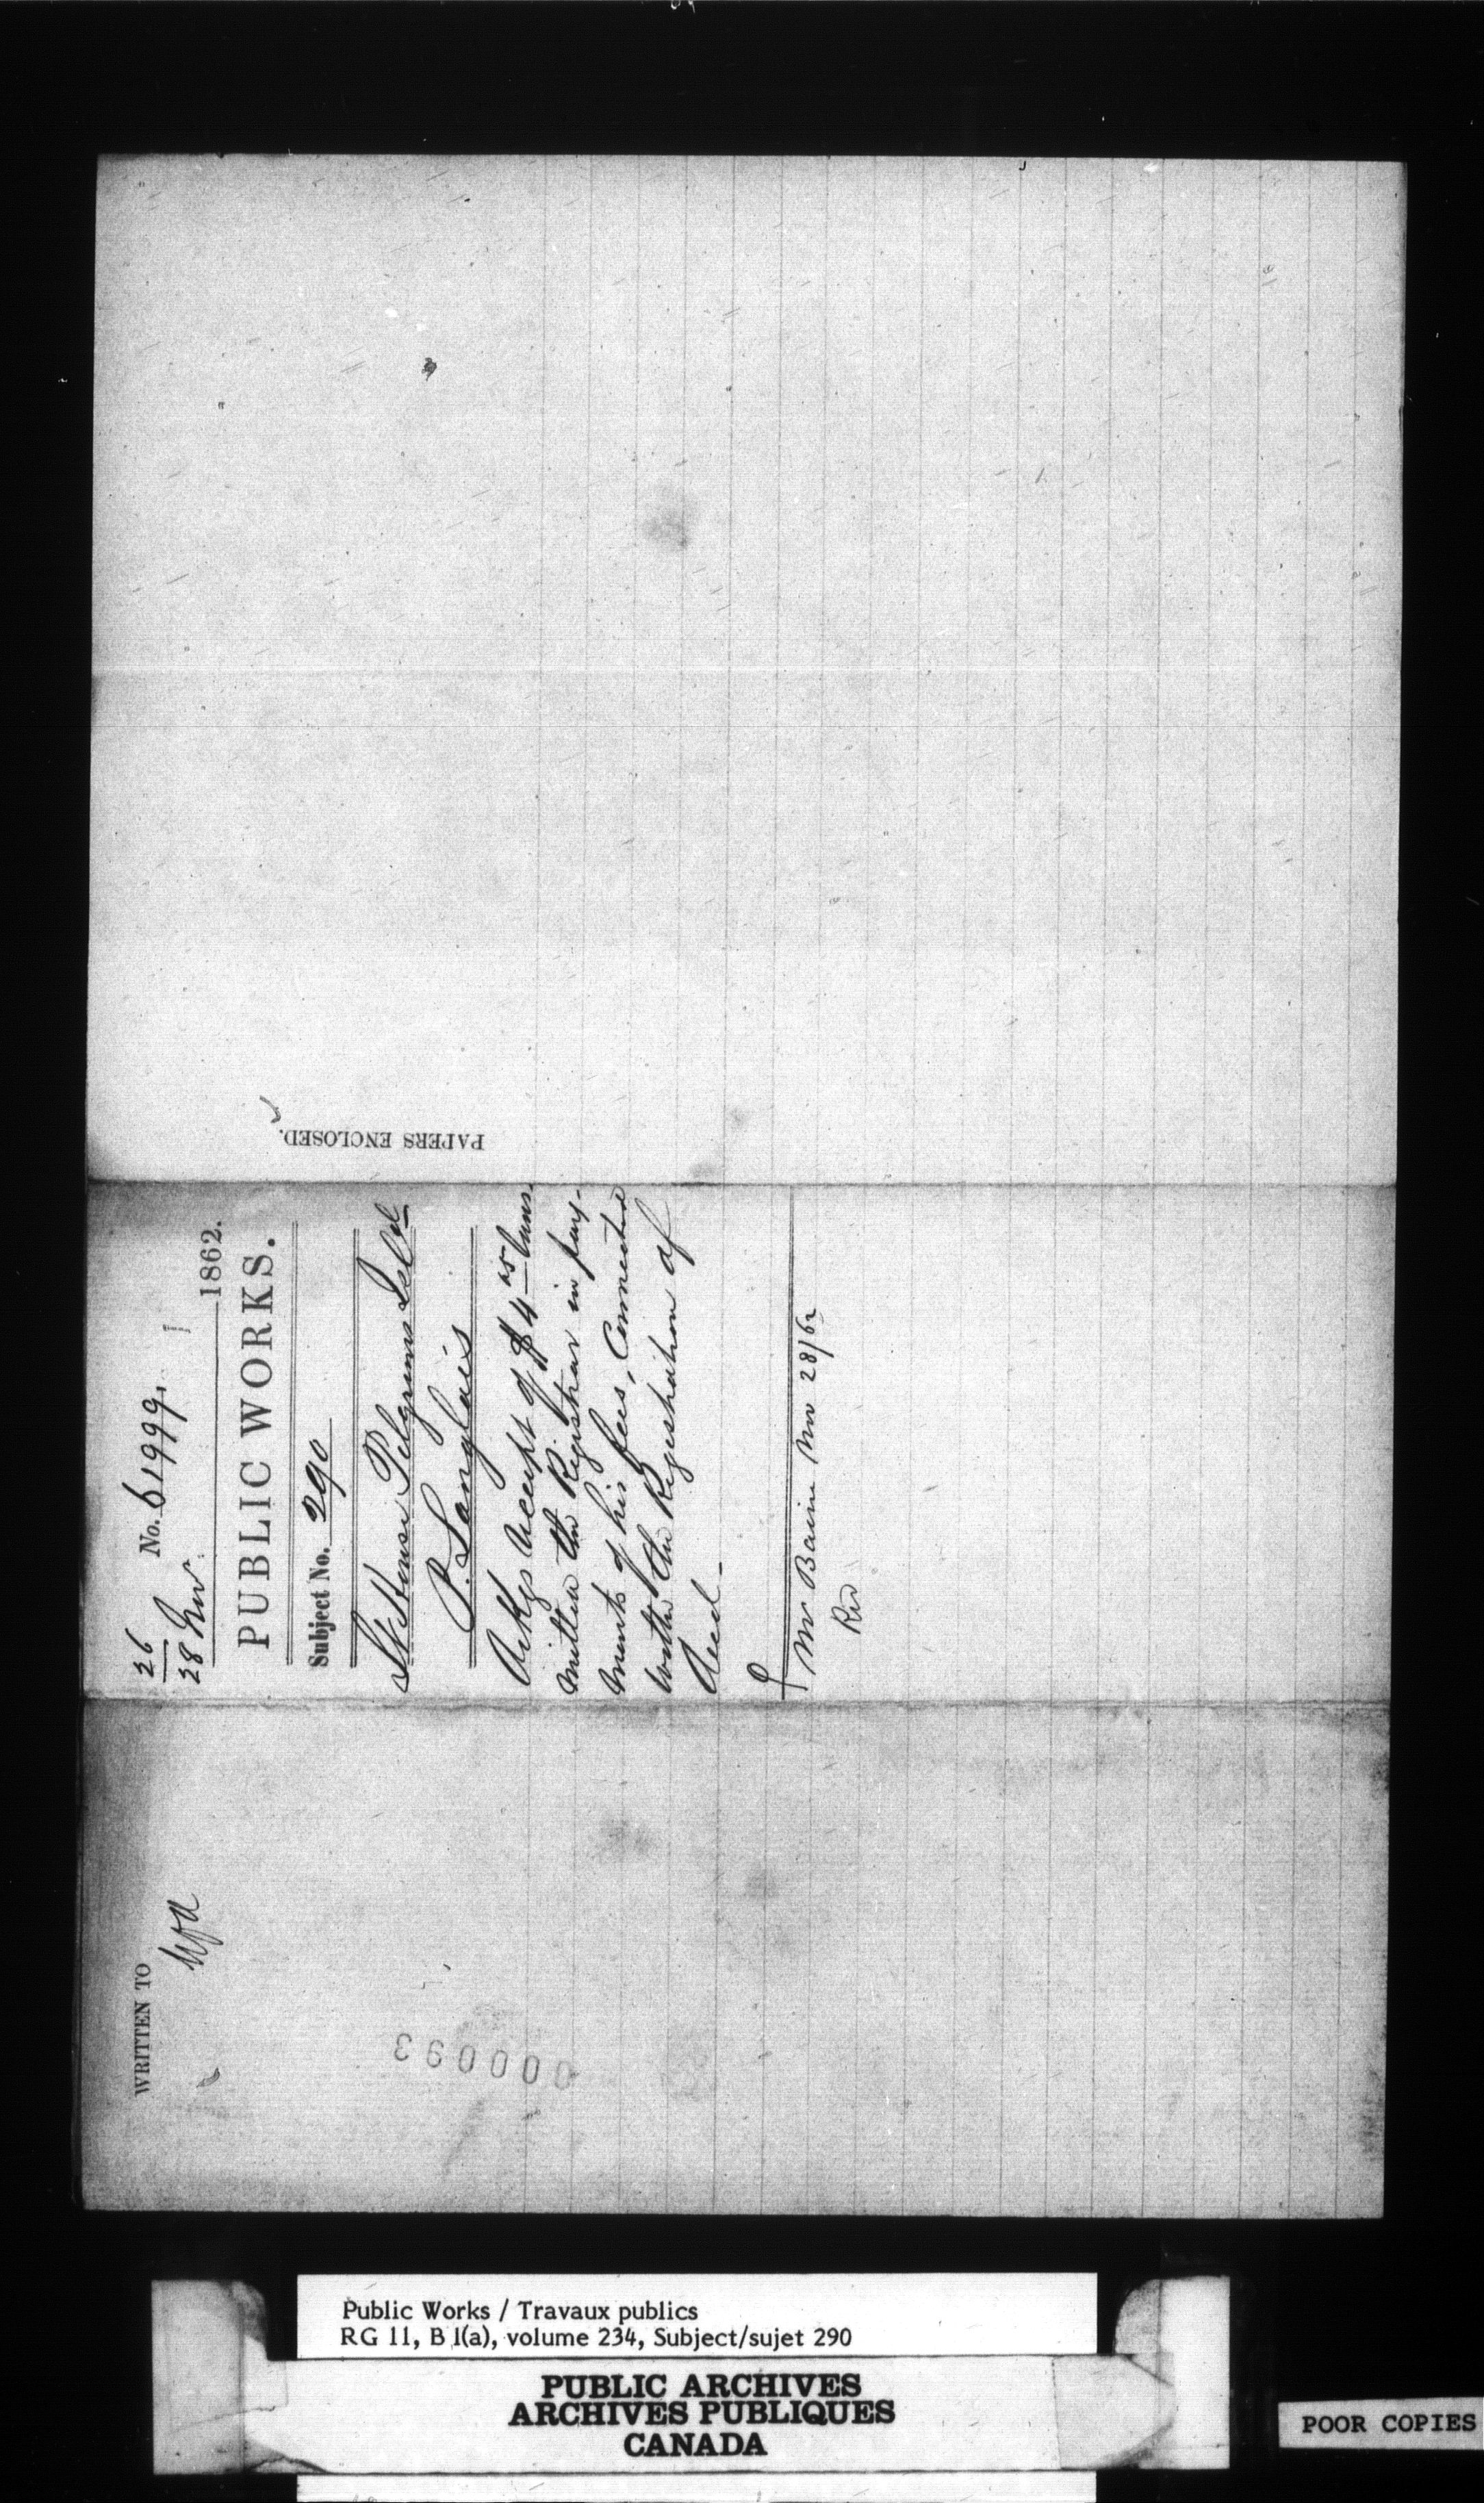 26
28 Nov. No. 61999,
1862.
PUBLIC WORKS.
Subject No. 290
Lt House Pilgrims Isld
P. Langlais
Ackgs receipt of $4 25 trans-
mitted the Registrar in pay-
ments of his fees, Connected
with the Registration of
deed -
Mr Baine Nov 28/62
PAPERS ENCLOSED.
WRITTEN TO
0000093
Public Works / Travaux publics
RG 11, B 1(a), volume 234, Subject/sujet 290
PUBLIC ARCHIVES
ARCHIVES PUBLIQUES
CANADA
POOR COPIES